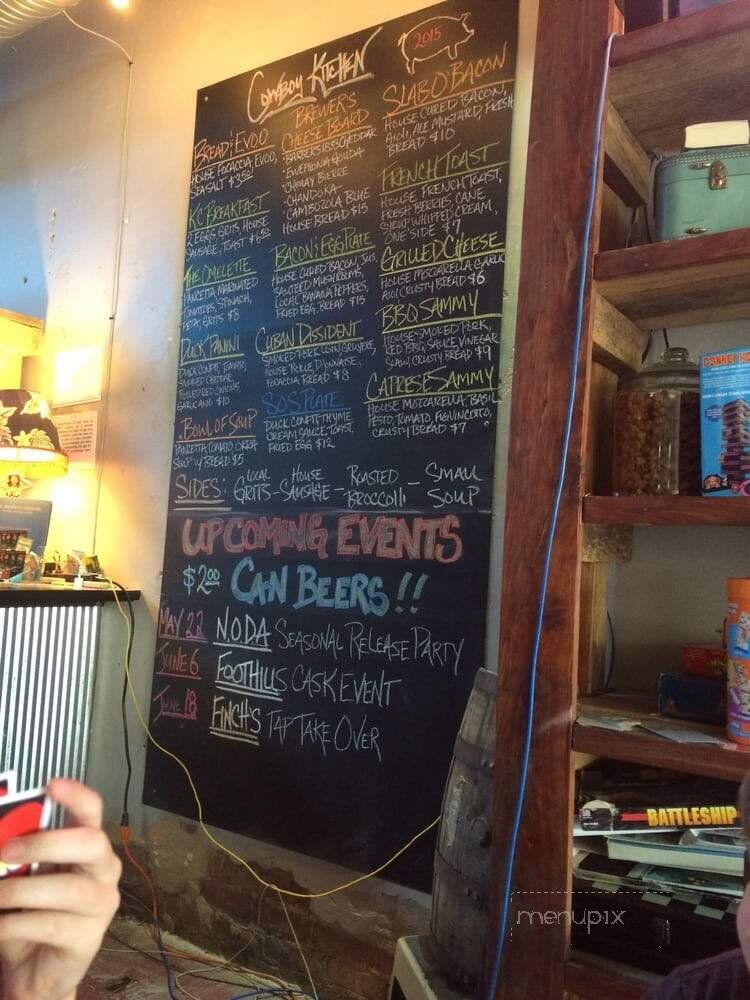 COWBOY KITCHEN
2015
BREAD & EVOO
HOUSE FOCACCIA, EVOO,
SEA SALT $3.50
KC BREAKFAST
2 EGGS, GRITS, HOUSE
SAUSAGE, TOAST $6.50
THE OMELETTE
PANCETTA, MARINATED
TOMATOES, SPINACH,
FETA, GRITS $8
DUCK PANINI
DUCK CONFIT, TOMATO,
SMOKED CHEDDAR,
PICKLED RED ONIONS,
GARLIC AIOLI $10
BOWL OF SOUP
PANCETTA TOMATO ORZO
SOUP W/ BREAD $5
BREWER'S
CHEESE BOARD
BARBERS 1833 CHEDDAR
EWEPHORIA GOUDA
CHIMAY BIERRE
CHANDOKA
CAMBOZOLA BLUE
HOUSE BREAD $15
BACON & EGG PLATE
HOUSE CURED BACON,
SAUTEED MUSHROOMS,
LOCAL BANANA PEPPERS,
FRIED EGG, BREAD $15
CUBAN DISSIDENT
SMOKED PORK LOIN, GRUYERE,
HOUSE PICKLE, DIJONNAISE,
FOCACCIA BREAD $8
SOS PLATE
DUCK CONFIT, THYME
CREAM SAUCE, TOAST,
FRIED EGG $12
SLAB O' BACON
HOUSE CURED BACON,
AIOLI, ALE MUSTARD, FRESH
BREAD $10
FRENCH TOAST
HOUSE FRENCH TOAST,
FRESH BERRIES, CANE
SYRUP WHIPPED CREAM,
"ONE SIDE" $7
GRILLED CHEESE
HOUSE MOZZARELLA, GARLIC
AIOLI, CRUSTY BREAD $6
BBQ SAMMY
HOUSE-SMOKED PORK,
RED BBQ SAUCE, VINEGAR
SLAW, CRUSTY BREAD $9
CAPRESE SAMMY
HOUSE MOZZARELLA, BASIL
PESTO, TOMATO, FIG VINCOTTO,
CRUSTY BREAD $7
SIDES: LOCAL GRITS - HOUSE SAUSAGE - ROASTED BROCCOLI - SMALL SOUP
UPCOMING EVENTS
$2.00 CAN BEERS!!
MAY 22 N.O.D.A SEASONAL RELEASE PARTY
JUNE 6 FOOTHILLS CASK EVENT
JUNE 18 FINCH'S TAP TAKE OVER
DONKEY
BATTLESHIP
menupix